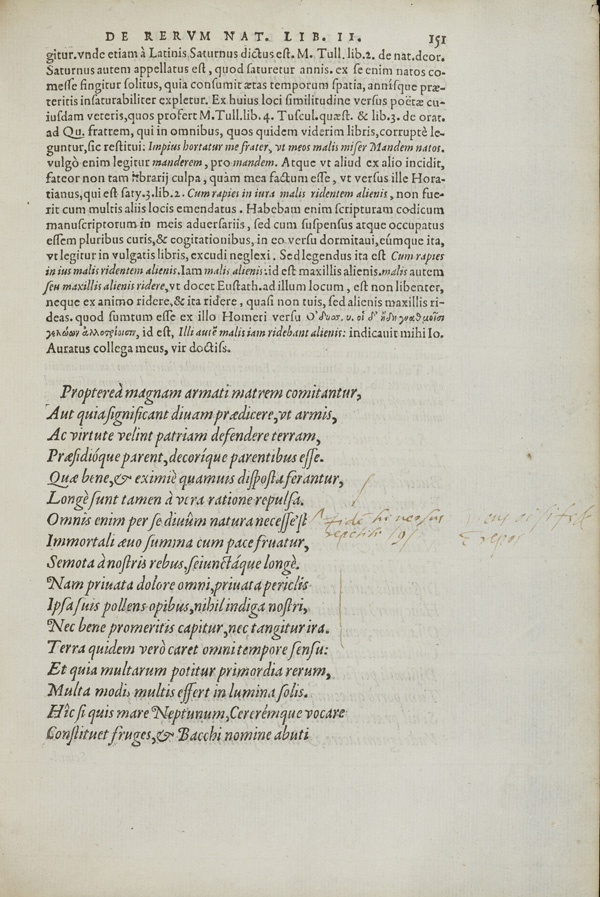 DE RERVM NAT. LIB. II. 151
gitur. vnde etiam à Latinis Saturnus dictus est. M. Tull. lib.2. de nat. deor.
Saturnus autem appellatus est, quod saturetur annis. ex se enim natos co-
messe fingitur solitus, quia consumit ætas temporum spatia, annisque præ-
teritis insaturabiliter expletur. Ex huius loci similitudine versus poëtæ cu-
iusdam veteris, quos profert M. Tull. lib. 4. Tuscul. quæst. & lib.3. de orat.
ad Qu. fratrem, qui in omnibus, quos quidem viderim libris, corruptè le-
guntur, sic restitui: Impius hortatur me frater, vt meos malis miser Mandem natos.
vulgò enim legitur manderem, pro mandem. Atque vt aliud ex alio incidit,
fateor non tam librarij culpa, quàm mea factum esse, vt versus ille Hora-
tianus, qui est saty.3. lib.2. Cum rapies in iura malis ridentem alienis, non fue-
rit cum multis aliis locis emendatus. Habebam enim scripturam codicum
manuscriptorum in meis aduersariis, sed cum suspensus atque occupatus
essem pluribus curis, & cogitationibus, in eo versu dormitaui, eúmque ita,
vt legitur in vulgatis libris, excudi neglexi. Sed legendus ita est Cum rapies
in ius malis ridentem alienis. Iam malis alienis: id est maxillis alienis. malis autem
seu maxillis alienis ridere, vt docet Eustath. ad illum locum, est non libenter,
neque ex animo ridere, & ita ridere, quasi non tuis, sed alienis maxillis ri-
deas. quod sumtum esse ex illo Homeri versu Ὀδυσσ. υ. οἱ δ' ἤδη γναθμοῖσι
γελώων ἀλλοτρίοισιν, id est, Illi autē malis iam ridebant alienis: indicauit mihi Io.
Auratus collega meus, vir doctiss.
Propterea magnam armati matrem comitantur,
Aut quia significant diuam prædicere, vt armis,
Ac virtute velint patriam defendere terram,
Præsidióque parent, decoríque parentibus esse.
Quæ bene, & eximiè quamuis disposta ferantur,
Longè sunt tamen à vera ratione repulsa.
Omnis enim per se diuûm natura necesse 'st
Immortali æuo summa cum pace fruatur,
Semota à nostris rebus, seiunctáque longè.
Nam priuata dolore omni, priuata periclis
Ipsa suis pollens opibus, nihil indiga nostri,
Nec bene promeritis capitur, nec tangitur ira.
Terra quidem verò caret omni tempore sensu:
Et quia multarum potitur primordia rerum,
Multa modis multis effert in lumina solis.
Hîc si quis mare Neptunum, Cererémque vocare
Constituet fruges, & Bacchi nomine abuti